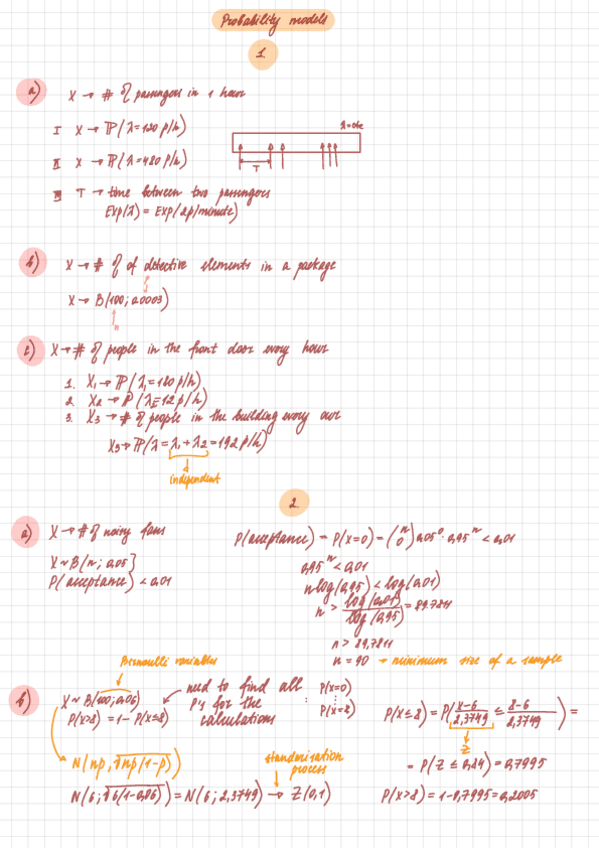 Probability models
1.
a) X → # of passengers in 1 hour
I X → P(λ=120 p/h)
λ=cte
II X → P(λ=480 p/h)
T
III T → time between two passengers
Exp(λ) = Exp(2p/minute)
b) X → # of of defective elements in a package
X → B(100; 0.0003)
n
c) X → # of people in the front door every hour
1. X₁ → P(λ₁=180 p/h)
2. X₂ → P(λ₂=12 p/h)
3. X₃ → # of people in the building every our
X₃ → P(λ=λ₁+λ₂=192 p/h)
independent
2.
a) X → # of noisy fans
X~B(n; 0,05)
P(acceptance) < 0,01
P(acceptance) = P(X=0) = (n 0) 0,05⁰ · 0,95ⁿ < 0,01
0,95ⁿ < 0,01
n log(0,95) < log(0,01)
n > log(0,01) / log(0,95) = 89.7811
n > 89,7811
n = 90 → minimum size of a sample
Bernoulli variables
b) X ~ B(100; 0,06)
P(X>8) = 1 - P(X≤8)
need to find all P's for the calculations
: P(X=0)
⋮
P(X=8)
P(X≤8) = P(X-6 / 2,3749 ≤ 8-6 / 2,3749) =
Z
N(np, √np(1-p))
standarisation process
= P(Z ≤ 0,84) = 0,7995
N(6; √6(1-0,06)) = N(6; 2,3749) → Z(0,1)
P(X>8) = 1-0,7995 = 0,2005